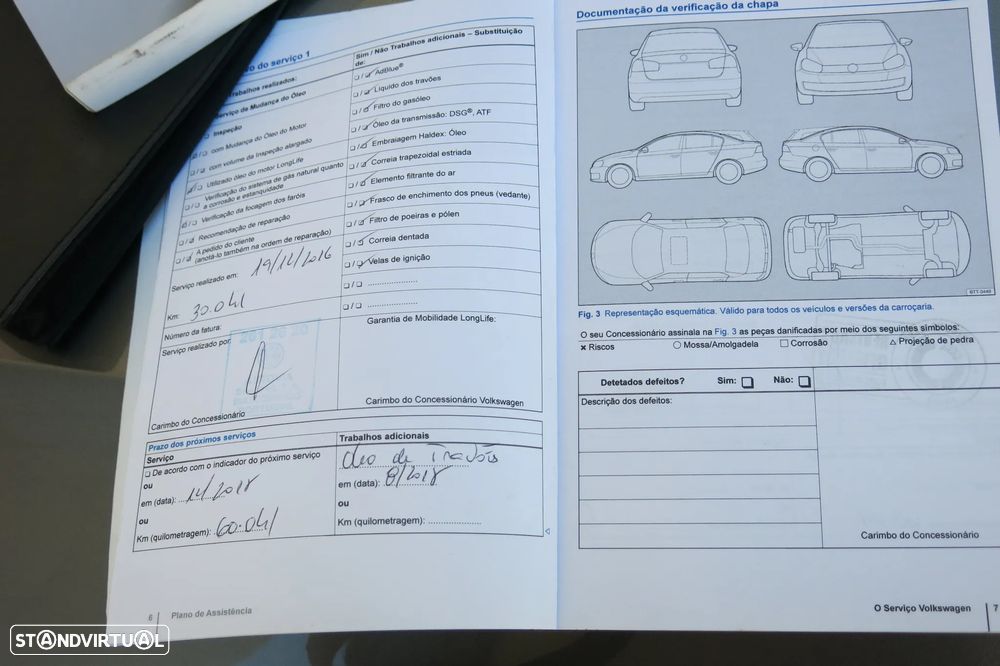 vo do serviço 1
Trabalhos realizados:
Serviço de Mudança do Óleo
Inspeção
com Mudança do Óleo do Motor
com volume da Inspeção alargado
Utilizado óleo do motor LongLife
Verificação do sistema de gás natural quanto
a corrosão e estanquidade
Verificação da focagem dos faróis
Recomendação de reparação
A pedido do cliente
(anotá-lo também na ordem de reparação)
Serviço realizado em: 19/12/2016
Km: 30.041
Número da fatura:
Serviço realizado por:
Carimbo do Concessionário
Sim / Não Trabalhos adicionais – Substituição
de:
AdBlue®
Líquido dos travões
Filtro do gasóleo
Óleo da transmissão: DSG®, ATF
Embraiagem Haldex: Óleo
Correia trapezoidal estriada
Elemento filtrante do ar
Frasco de enchimento dos pneus (vedante)
Filtro de poeiras e pólen
Correia dentada
Velas de ignição
Garantia de Mobilidade LongLife:
Carimbo do Concessionário Volkswagen
Prazo dos próximos serviços
Serviço
De acordo com o indicador do próximo serviço
ou
em (data): 12/2018
ou
Km (quilometragem): 60.041
Trabalhos adicionais
Óleo de Travões
em (data): 8/2018
ou
Km (quilometragem): ....................
6 Plano de Assistência
Documentação da verificação da chapa
BTT-0449
Fig. 3 Representação esquemática. Válido para todos os veículos e versões da carroçaria.
O seu Concessionário assinala na Fig. 3 as peças danificadas por meio dos seguintes símbolos:
× Riscos ○ Mossa/Amolgadela □ Corrosão △ Projeção de pedra
Detetados defeitos? Sim: □ Não: □
Descrição dos defeitos:
Carimbo do Concessionário
O Serviço Volkswagen 7
STANDVIRTUAL